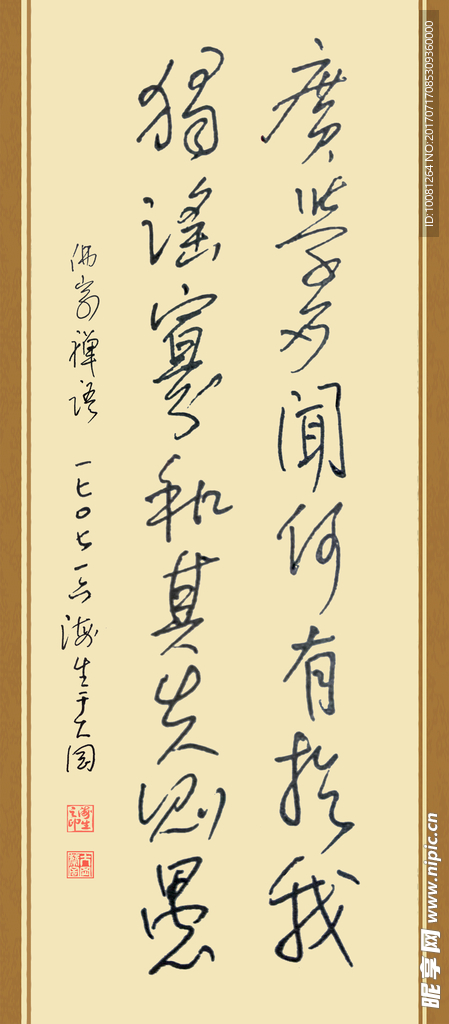 廣學多聞何有於我
獨謠寡和其失則愚
佛家禪語 一七〇七一六 海生于
海生之印
ID:10081264 NO:20170717085309360000
昵享网 www.nipic.cn